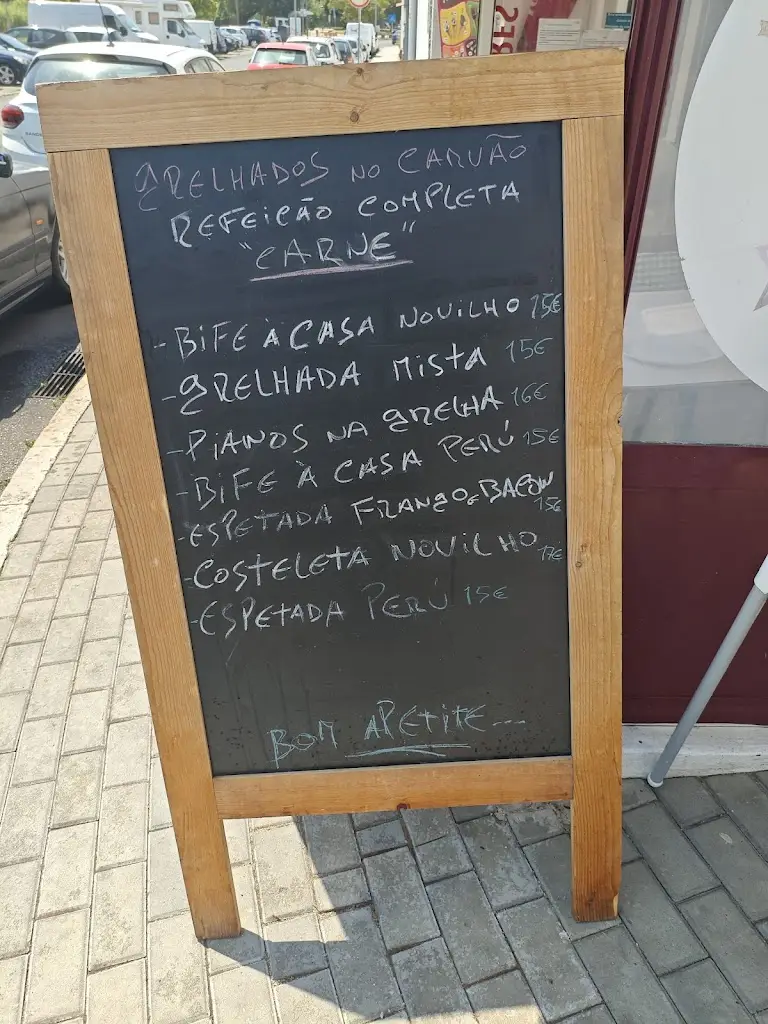 GRELHADOS NO CARVÃO
REFEIÇÃO COMPLETA
"CARNE"
- BIFE À CASA NOVILHO 15€
- GRELHADA MISTA 15€
- PIANOS NA GRELHA 16€
- BIFE À CASA PERÚ 15€
- ESPETADA FRANGO E BACON
15€
- COSTELETA NOVILHO 17€
- ESPETADA PERÚ 15€
BOM APETITE...